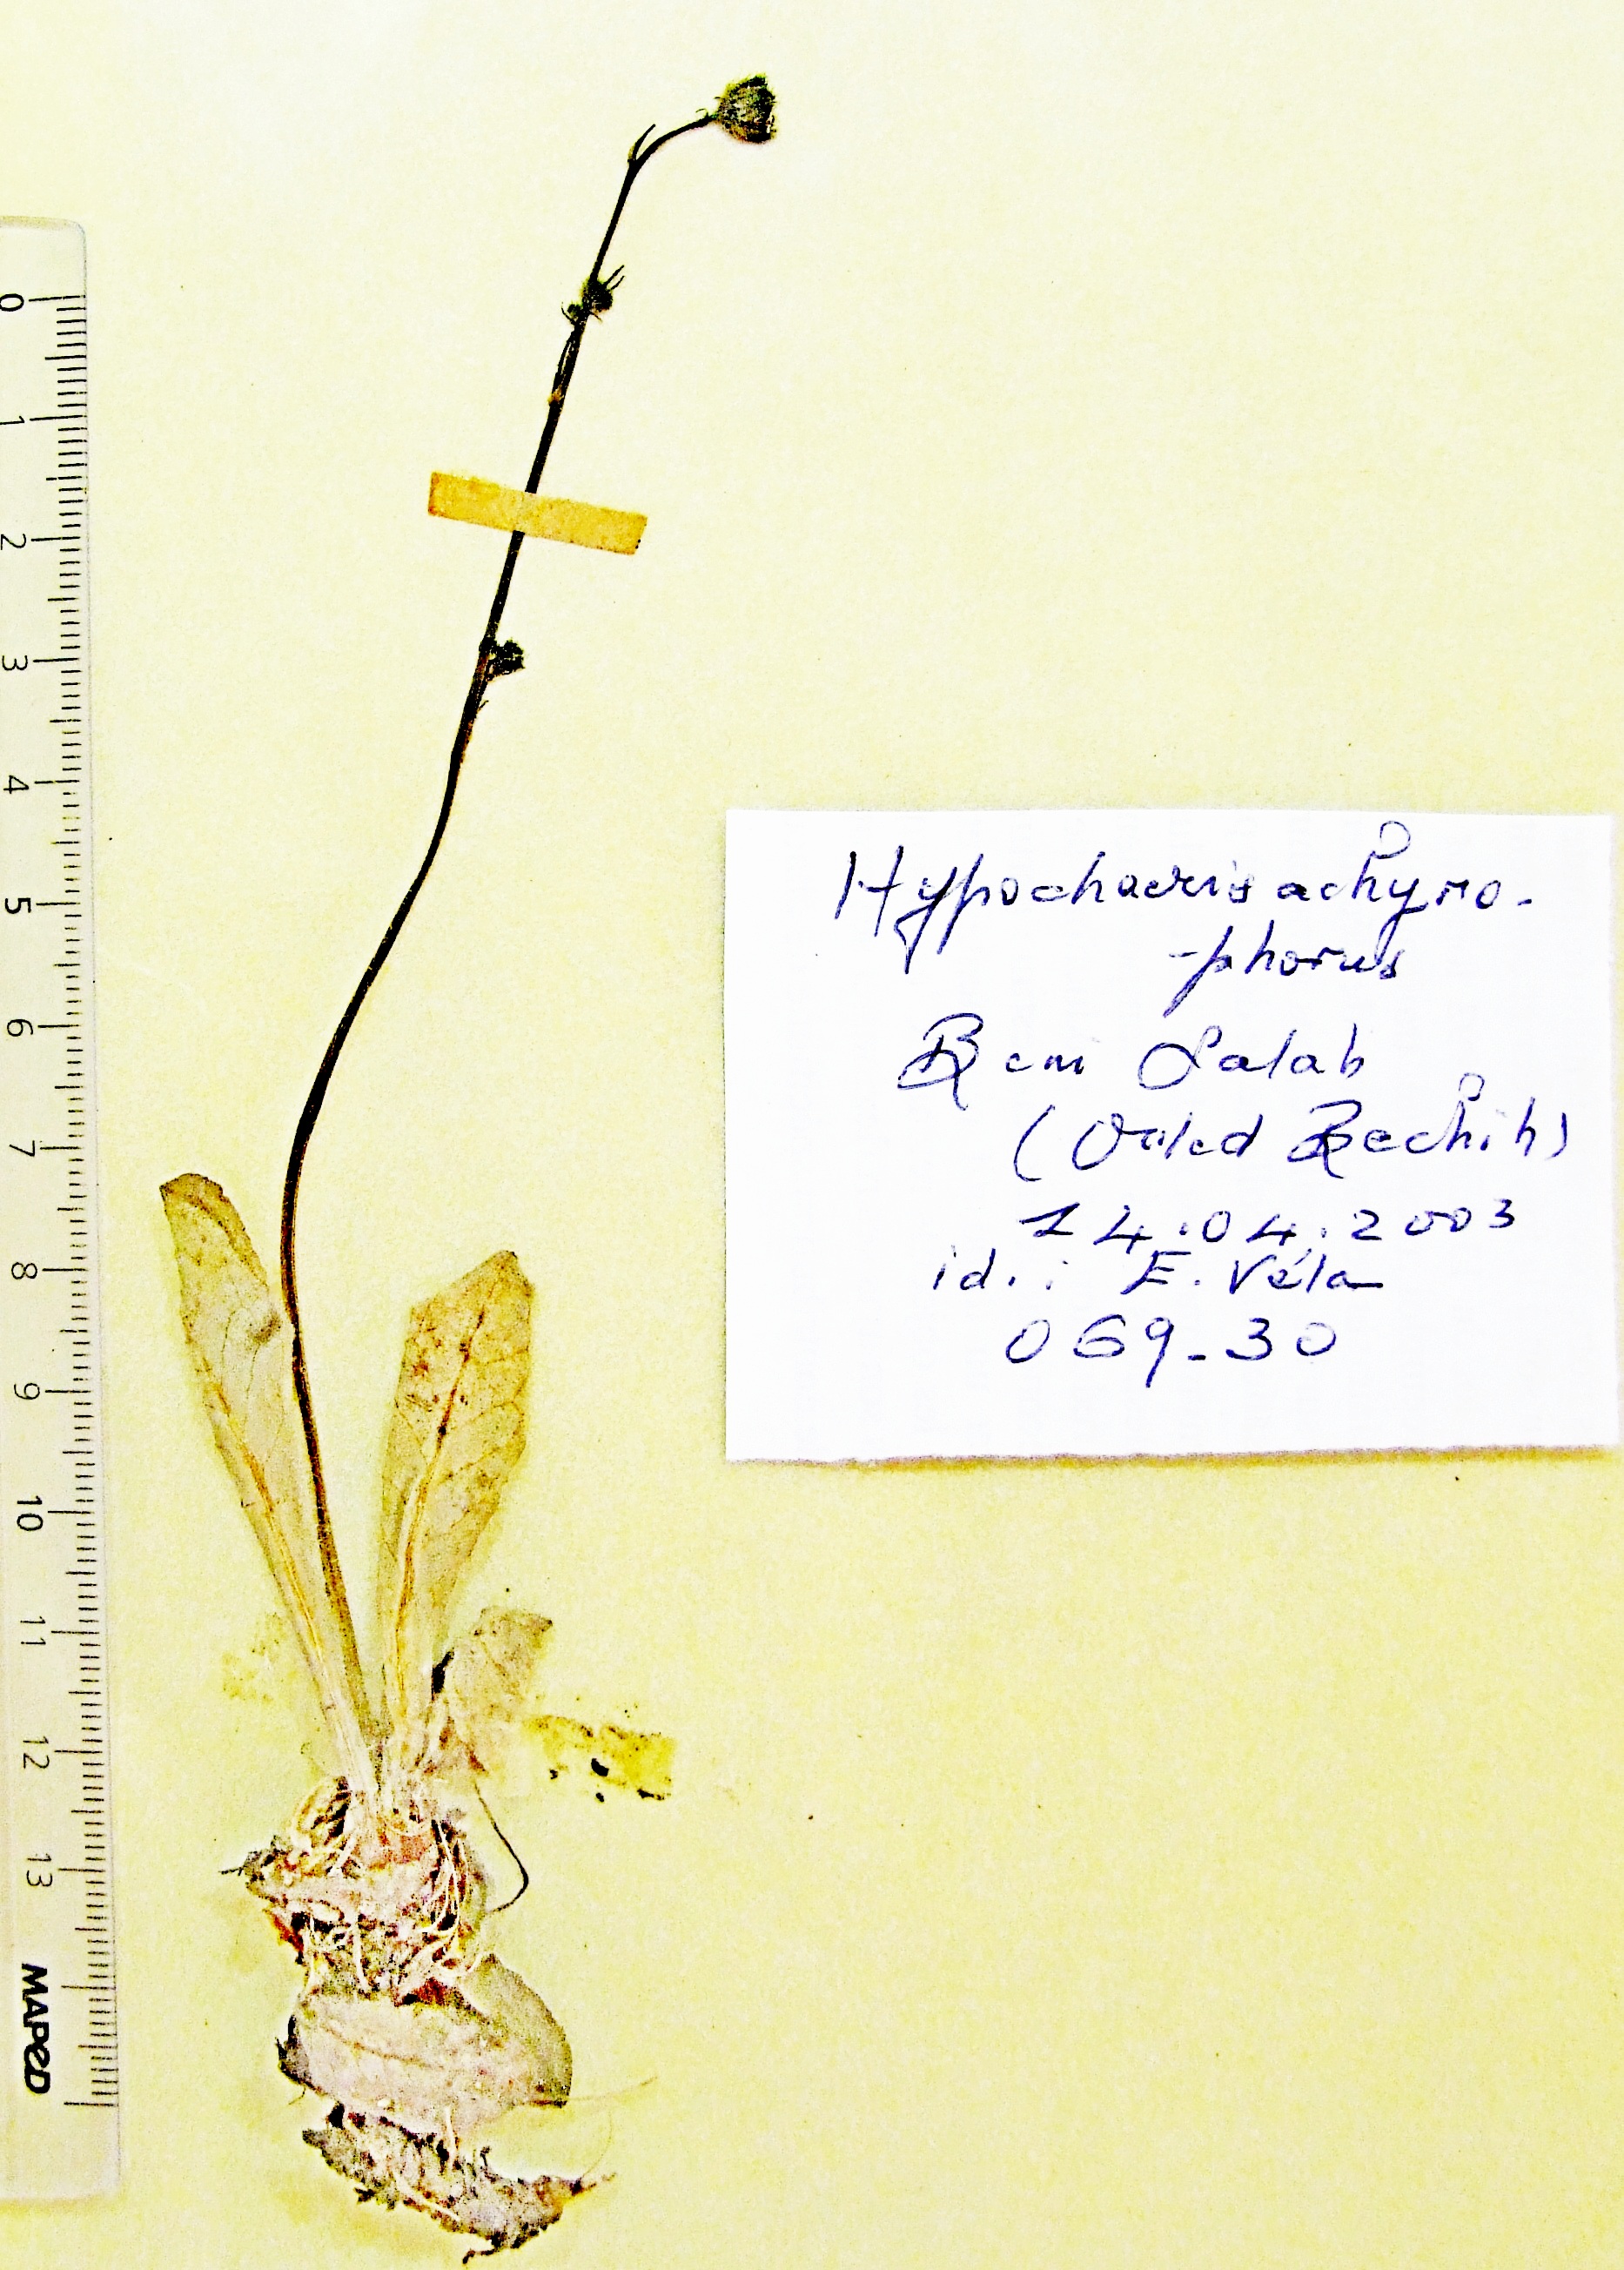 Hypochaeris achyro-
-phorus
Beni Salah
(Ouled Bechih)
14.04.2003
id. : E. Véla
069-30
0
1
2
3
4
5
6
7
8
9
10
11
12
13
MAPED